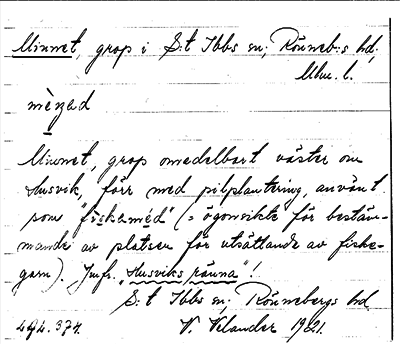 Minnet, grop i S:t Ibbs sn; Rönneb:s hd,
Mlm. l.
Minnet, grop omedelbart väster om
Husvik, förr med pilplantering, använt
som "fiskeméd" (= ögonsikte för bestäm-
mande av platsen för utsättande av fiske-
garn). Jmfr. "Husviksränna"!
S:t Ibbs sn, Rönnebergs hd
494.374. V. Velander 1921.